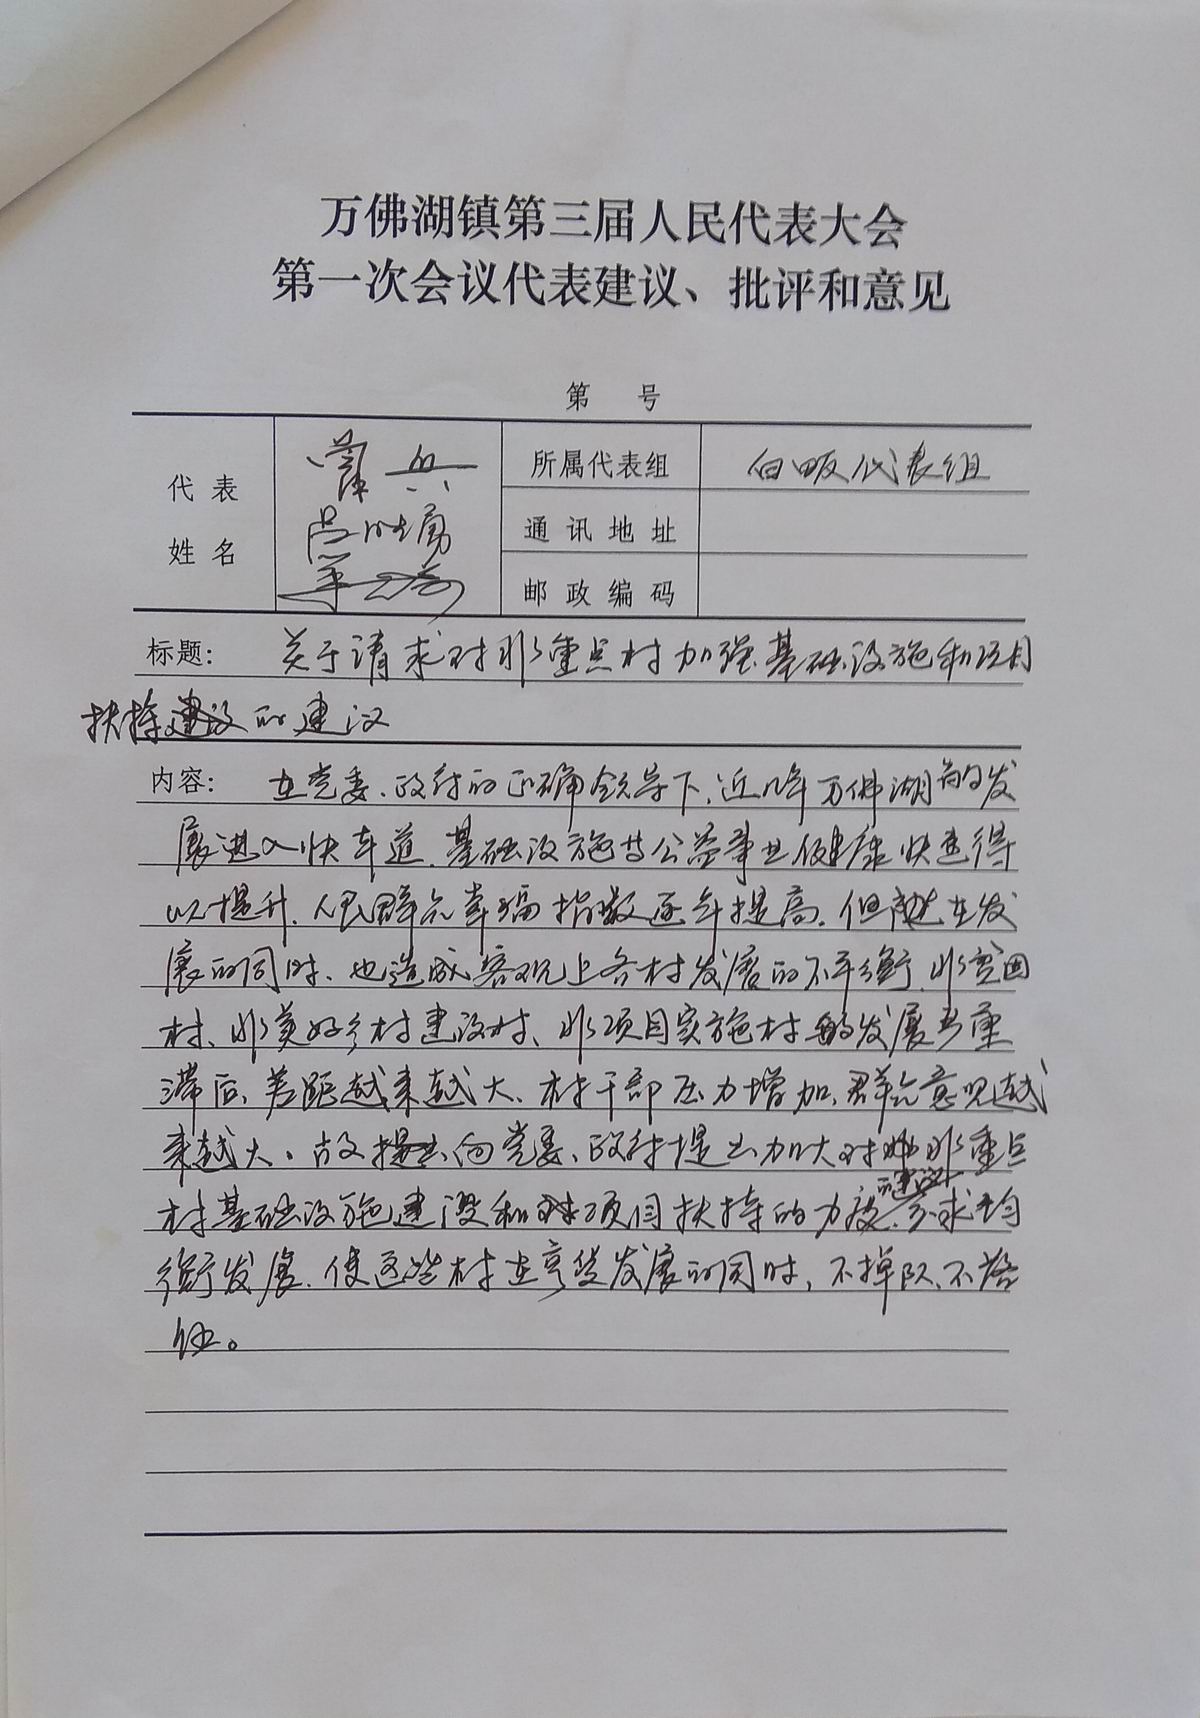 万佛湖镇第三届人民代表大会
第一次会议代表建议、批评和意见
第 号
代表
姓名
所属代表组
白畈代表组
通讯地址
邮政编码
标题：
关于请求对非重点村加强基础设施和项目
扶持的建议
内容：
在党委、政府的正确领导下，近几年万佛湖的发
展进入快车道，基础设施与公益事业健康快速得
以提升，人民群众幸福指数逐年提高，但在发
展的同时，也造成客观上各村发展的不平衡，非贫困
村、非美好乡村建设村、非项目实施村的发展严重
滞后，差距越来越大，村干部压力增加，群众意见越
来越大，故向党委、政府提出加大对非重点
村基础设施建设和项目扶持的力度的建议，以求均
衡发展，使这些村在享受发展的同时，不掉队、不落
伍。